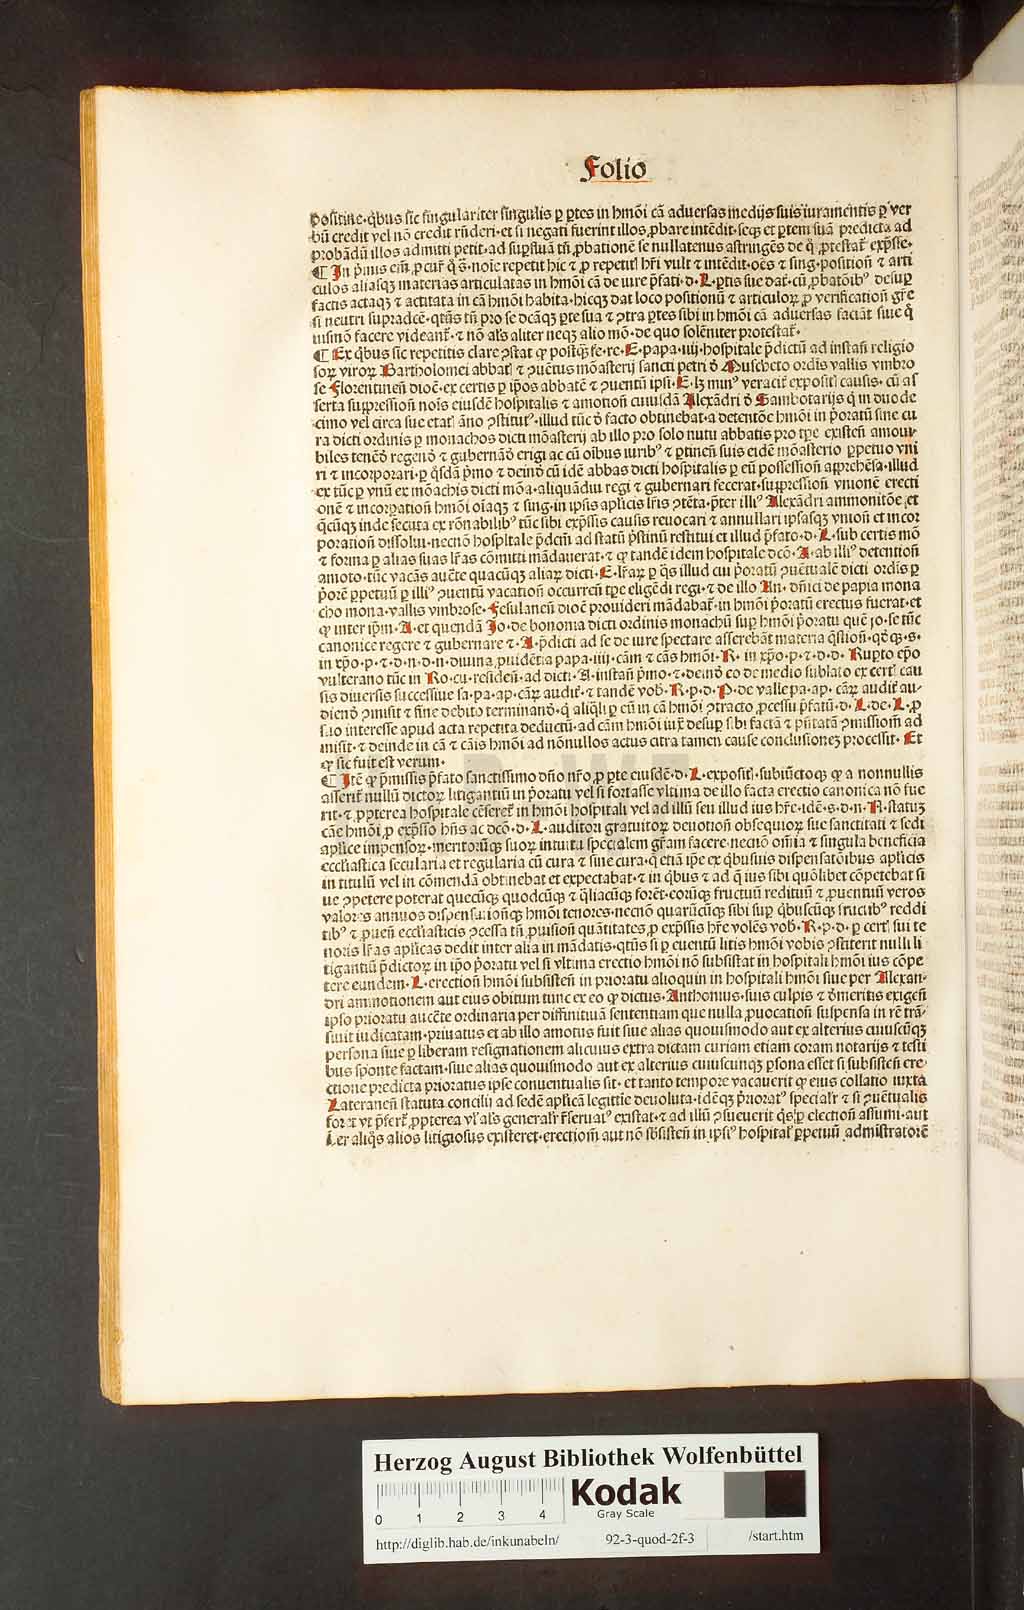 Folio
positiue·q̄bus sic singulariter singulis ꝑ ꝑtes in hmōi cā aduersas medijs suis iuramentis ꝑ ver
bū credit vel nō credit rn̄deri·et si negati fuerint illos ꝓbare intēdit·seqꝫ et ꝑtem suā predicta ad
probādū illos admitti petit·ad suꝑfluā tn̄ ꝓbationē se nullatenus astringēs de q̄ ꝓtestat᷑ exp̄sse·
¶ In p̄mis eīꝫ ꝓcur̄ q̄ s̄·noīe repetit hic ⁊ ꝓ repetit᷑ hr̄i vult ⁊ intēdit·oēs ⁊ sing·position̄ ⁊ arti
culos aliasqꝫ materias articulatas in hmōi cā de iure p̄fati·d·L·ꝑtis sue dat᷑·cū ꝓbatōibꝰ desuꝑ
factis actaqꝫ ⁊ actitata in cā hmōi habita·hicqꝫ dat loco positionū ⁊ articuloꝝ ꝓ verification̄ gr̄e
si neutri supradcē·qtn̄s tn̄ pro se dcāqꝫ ꝑte sua ⁊ ꝯtra ꝑtes sibi in hmōi cā aduersas faciāt siue q̄
iusmō facere videant᷑·⁊ nō al̄s aliter neqꝫ alio mō·de quo solēniter protestat᷑·
¶ Ex q̄bus sic repetitis clare ꝯstat ꝙ postq̄ꝫ fe·re·E·papa·iiij·hospitale p̄dictū ad instan̄ religio
soꝝ viroꝝ Bartholomei abbat᷑ ⁊ ꝯuētus mōasterij sancti petri d̄ Muscheto ordīs vallis vmbro
se Florentineñ dioc̄·ex certis ꝑ ip̄os abbatē ⁊ ꝯuentū ipsi·E·lꝫ minꝰ veracit᷑ exposit᷑ causis·cū as
serta suppression̄ noīs eiusdē hospitalis ⁊ amotion̄ cuiusdā Alexādri d̄ Gambotarijs q̄ in duode
cimo vel circa sue etat᷑ āno ꝯstitutꝰ·illud tūc d̄ facto obtinebat·a detentōe hmōi in p̄oratū sine cu
ra dicti ordinis ꝑ monachos dicti mōasterij ab illo pro solo nutu abbatis pro tꝑe existen̄ amoui
biles tenēd̄ regend̄ ⁊ gubernād̄ erigi ac cū oībus iuribꝰ ⁊ ꝑtinen̄ suis eidē mōasterio ꝑpetuo vni
ri ⁊ incorporari·ꝑ q̄sdā p̄mo ⁊ deind̄ cū idē abbas dicti hospitalis ꝑ eū possession̄ apprehēsa·illud
ex tūc ꝑ vnū ex mōachis dicti mōa·aliquādiu regi ⁊ gubernari fecerat·suppression̄ vnionē erecti
onē ⁊ incorpation̄ hmōi oīaqꝫ ⁊ sing·in ipsis aplicis lr̄is ꝯtēta·p̄ter illiꝰ Alexādri ammonitōe·et
q̄cūqꝫ inde secuta ex rōnabilibꝰ tūc sibi exp̄ssis causis reuocari ⁊ annullari ipsasqꝫ vnion̄ et incor
poration̄ dissolui·necnō hospitale p̄dcm̄ ad statū p̄stinū restitui et illud p̄fato·d·L·sub certis mō
⁊ forma ꝑ alias suas lr̄as cōmitti mādauerat·⁊ ꝙ tandē idem hospitale dcō·A·ab illiꝰ detention̄
amoto·tūc vacās aucte quacūqꝫ aliaꝝ dicti·E·lr̄aꝝ ꝑ q̄s illud cui p̄oratū ꝯuētualē dicti ordīs ꝑ
p̄orē ꝑpetuū ꝑ illiꝰ ꝯuentū vacation̄ occurren̄ tꝑe eligēdi regi·⁊ de illo An·dn̄ici de papia mona
cho mona·vallis vmbrose·Fesulanen̄ dioc̄ prouideri mādabat᷑·in hmōi p̄oratū erectus fuerat·et
ꝙ inter ip̄m·A·et quendā Jo·de bononia dicti ordinis monachū suꝑ hmōi p̄oratu quē jo·se tūc
canonice regere ⁊ gubernare ⁊·A·p̄dicti ad se de iure spectare asserebāt materia q̄stion̄·qr̄qꝫ·s·
in xp̄o·p·⁊·d·n·d·n·diuina ꝓuidētia papa·iiij·cām ⁊ cās hmōi·R·in xp̄o·p·⁊·d·d·Ruꝑto ep̄o
vulterano tūc in Ro·cu·residen̄·ad dicti·A·instan̄ p̄mo·⁊·deind̄ eo de medio sublato ex cert᷑ cau
sis diuersis successiue sa·pa·ap·cāꝝ audit᷑·⁊ tandē vob·R·p·d·P·de valle pa·ap·cāꝝ audit᷑ au-
diend̄ ꝯmisit ⁊ fine debito terminand̄·q̄ aliq̄li ꝑ eū in cā hmōi ꝯtracto ꝓcessu p̄fatū·d·L·de·L·ꝓ
suo interesse apud acta repetita deductū·ad cām hmōi iux̄ desuꝑ sibi factā ⁊ pn̄tatā ꝯmissioīm ad
misit·⁊ deinde in cā ⁊ cāis hmōi ad nōnullos actus citra tamen cause conclusioneꝫ processit·Et
ꝙ sic fuit est verum·
¶ Itē ꝙ p̄missis p̄fato sanctissimo dn̄o nr̄o ꝓ ꝑte eiusdē·d·L·exposit᷑·subiūctoqꝫ ꝙ a nonnullis
asserit᷑ nullū dictoꝝ litigantiū in p̄oratu vel si fortasse vltima de illo facta erectio canonica nō fue
rit·⁊ ꝓpterea hospitale cēseret᷑ in hmōi hospitali vel ad illū seu illud ius hr̄e·idē·s·d·n·N·statuꝫ
cāe hmōi ꝓ exp̄sso hn̄s ac dcō·d·L·auditori gratuitoꝝ deuotion̄ obsequioꝝ sue sanctitati ⁊ sedi
aplice impensoꝝ·meritorūqꝫ suoꝝ intuitu specialem gr̄am facere·necnō omnia ⁊ singula beneficia
ecclīastica secularia et regularia cū cura ⁊ sine cura·q̄ etiā ip̄e ex q̄busuis dispensatōibus aplicis
in titulū vel in cōmendā obtinebat et expectabat·⁊ in q̄bus ⁊ ad q̄ ius sibi quōlibet cōpetebat si
ue ꝯpetere poterat quecūqꝫ quodcūqꝫ ⁊ q̄liacūqꝫ forēt·eorūqꝫ fructuū redituū ⁊ ꝓuentuū veros
valores annuos dispensationūqꝫ hmōi tenores·necnō quarūcūqꝫ sibi suꝑ q̄buscūqꝫ fructibꝰ reddi
tibꝰ ⁊ ꝓuen̄ ecclīasticis ꝯcessa tn̄ ꝓuision̄ quātitates ꝓ exp̄ssis hr̄e volēs vob·R·p·d·ꝑ cert᷑ sui te
noris lr̄as aplicas dedit inter alia in mādatis·qtn̄s si ꝑ euentū litis hmōi vobis ꝯstiterit nulli li
tigantiū p̄dictoꝝ in ip̄o p̄oratu vel si vltima erectio hmōi nō subsistat in hospitali hmōi ius cōpe
tere eundem·L·erection̄ hmōi subsisten̄ in prioratu alioquin in hospitali hmōi siue per Alexan-
dri ammotionem aut eius obitum tunc ex eo ꝙ dictus·Anthonius·suis culpis ⁊ d̄meritis exigen̄
ipso prioratu aucēte ordinaria per diffinituiā sententiam que nulla ꝓuocation̄ suspensa in rē trā-
siuit iudicatam·priuatus et ab illo amotus fuit siue alias quouismodo aut ex alterius cuiuscūqꝫ
persona siue ꝑ liberam resignationem alicuius extra dictam curiam etiam coram notarijs ⁊ testi
bus sponte factam·siue alias quouismodo aut ex alterius cuiuscunqꝫ ꝑsona esset si subsisten̄ cre
ctione predicta prioratus ipse conuentualis sit·et tanto tempore vacauerit ꝙ eius collatio iuxta
Lateranen̄ statuta concilij ad sedē aplicā legittie deuoluta·idēqꝫ p̄oratꝰ specialr̄ ⁊ si ꝯuētualis
foret vt p̄fert᷑ ꝓpterea vl᷑ al̄s generalr̄ r̄seruatꝰ existat·⁊ ad illū ꝯsueuerit q̄s ꝑ election̄ assumi·aut
L er aliq̄s alios litigiosus existeret·erectioīm aut nō sb̄sisten̄ in ipsiꝰ hospital᷑ ꝑpetuū admistratorē
Herzog August Bibliothek Wolfenbüttel
0 1 2 3 4
Kodak
Gray Scale
http://diglib.hab.de/inkunabeln/ 92-3-quod-2f-3 /start.htm